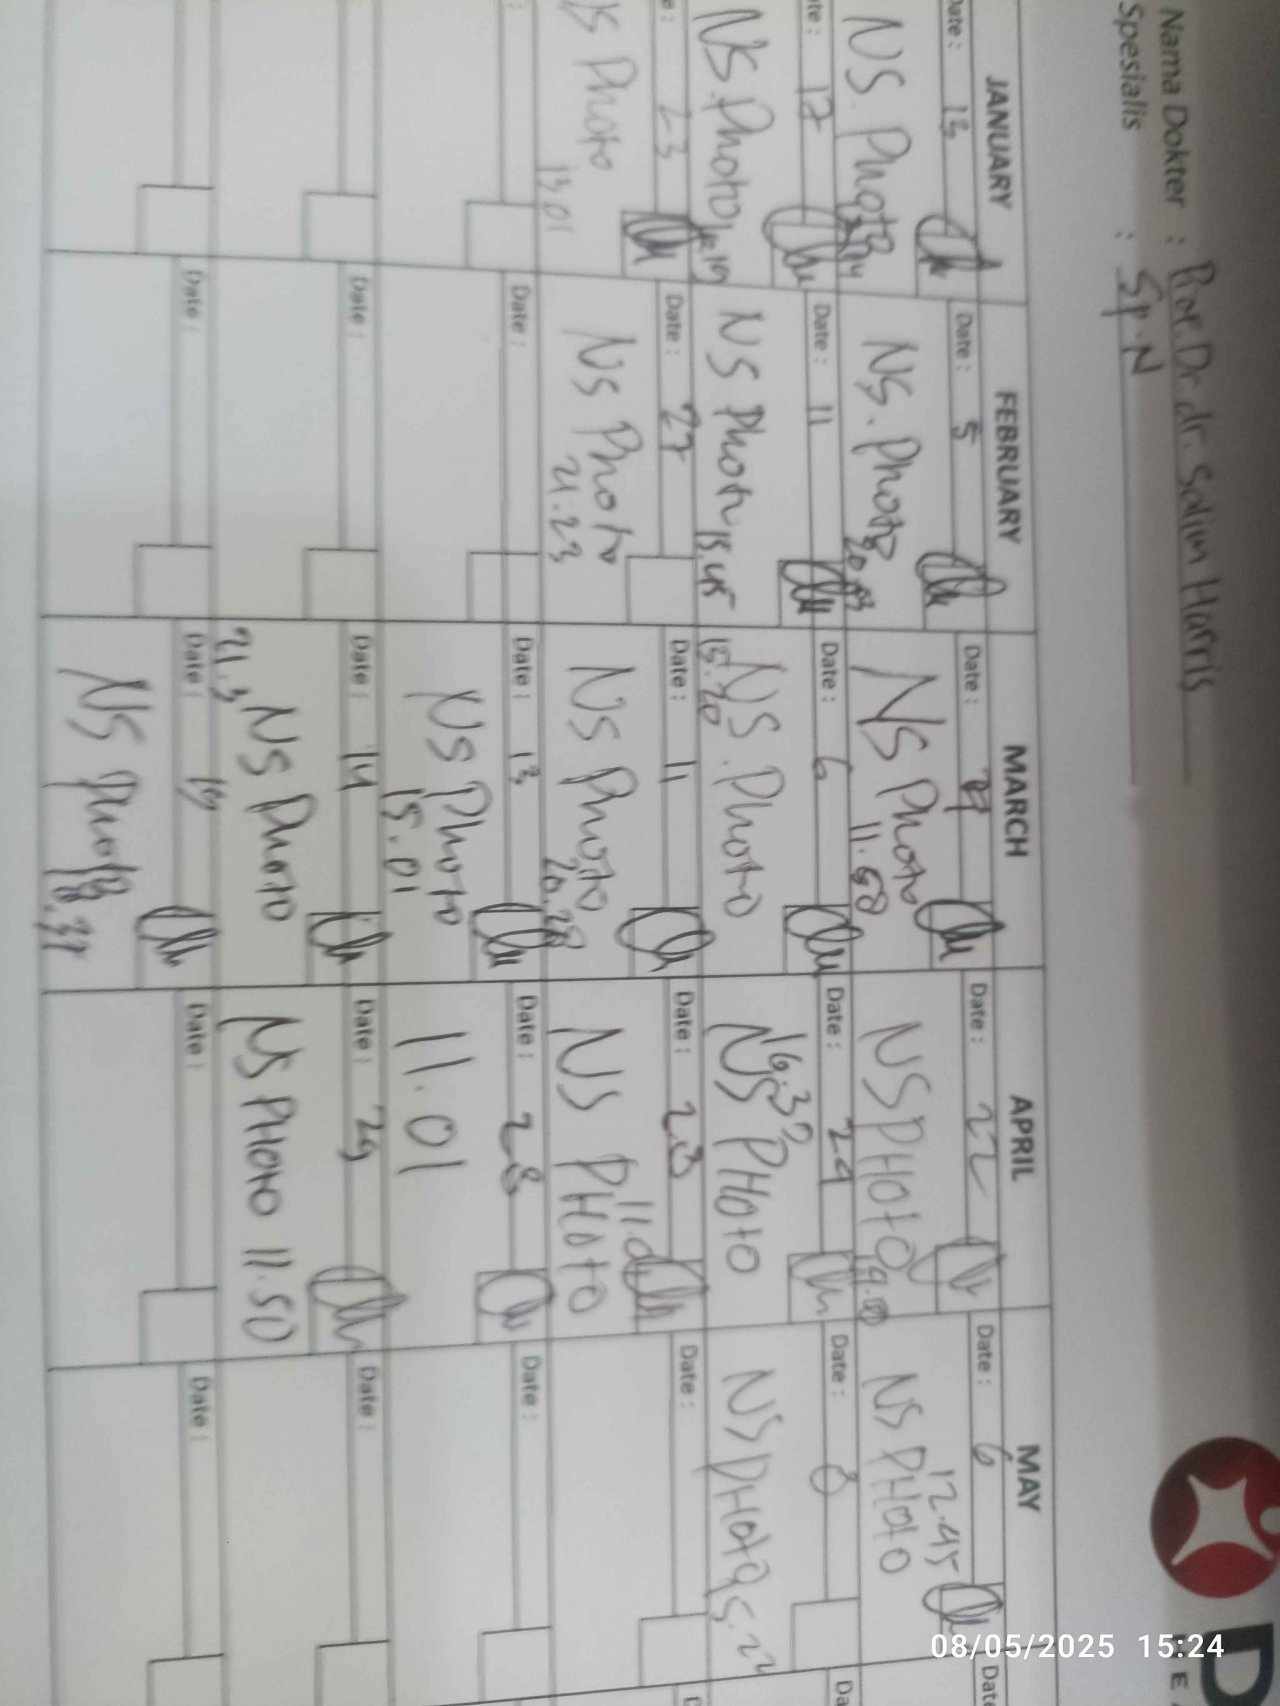 Nama Dokter : Prof. Dr. dr. Salim Harris
Spesialis : Sp.N
JANUARY FEBRUARY MARCH APRIL MAY
Date: 13 Date: 5 Date: Date: 22 Date: 6 Date
NS. Photo NS. Photo NS Photo 11.58 NS PHOTO NS PHOTO 12.45
Date: 17 Date: 11 Date: 6 Date: 24 Date: 8
NS. Photo NS Photo 15.45 NS. Photo 15.20 NS PHOTO 16.32 NS PHOTO 15.22
23 Date: 27 Date: 11 Date: 28 Date:
NS Photo 13.01 NS Photo 21.23 NS Photo 20.28 NS PHOTO
Date: Date: 13 Date: 28 Date:
NS Photo 15.01 11.01
Date: Date: 14 Date: 29 Date:
NS Photo NS PHOTO 11.50
Date: Date: 19 Date: Date:
NS Photo 18.37
08/05/2025 15:24